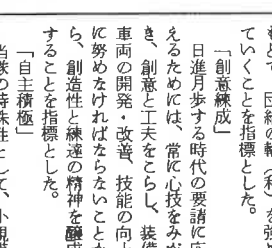 団結・輪（和）を強
ていくことを指標とした。
「創意練成」
日進月歩する時代の要請に応
えるためには、常に心技をみが
き、創意と工夫をこらし、装備
車両の開発・改善、技能の向上
に努めなければならないことか
ら、創造性と練達の精神を醸成
することを指標とした。
「自主積極」
当隊の特殊性として、小規